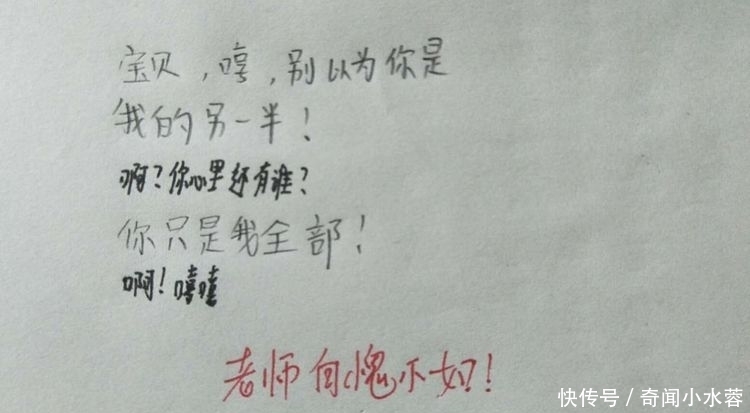 宝贝，嘻，别以为你是
我的另一半！
啊？你心里还有谁？
你只是我全部！
啊！嘻嘻
老师自愧不如！
快传号 / 奇闻小水蓉